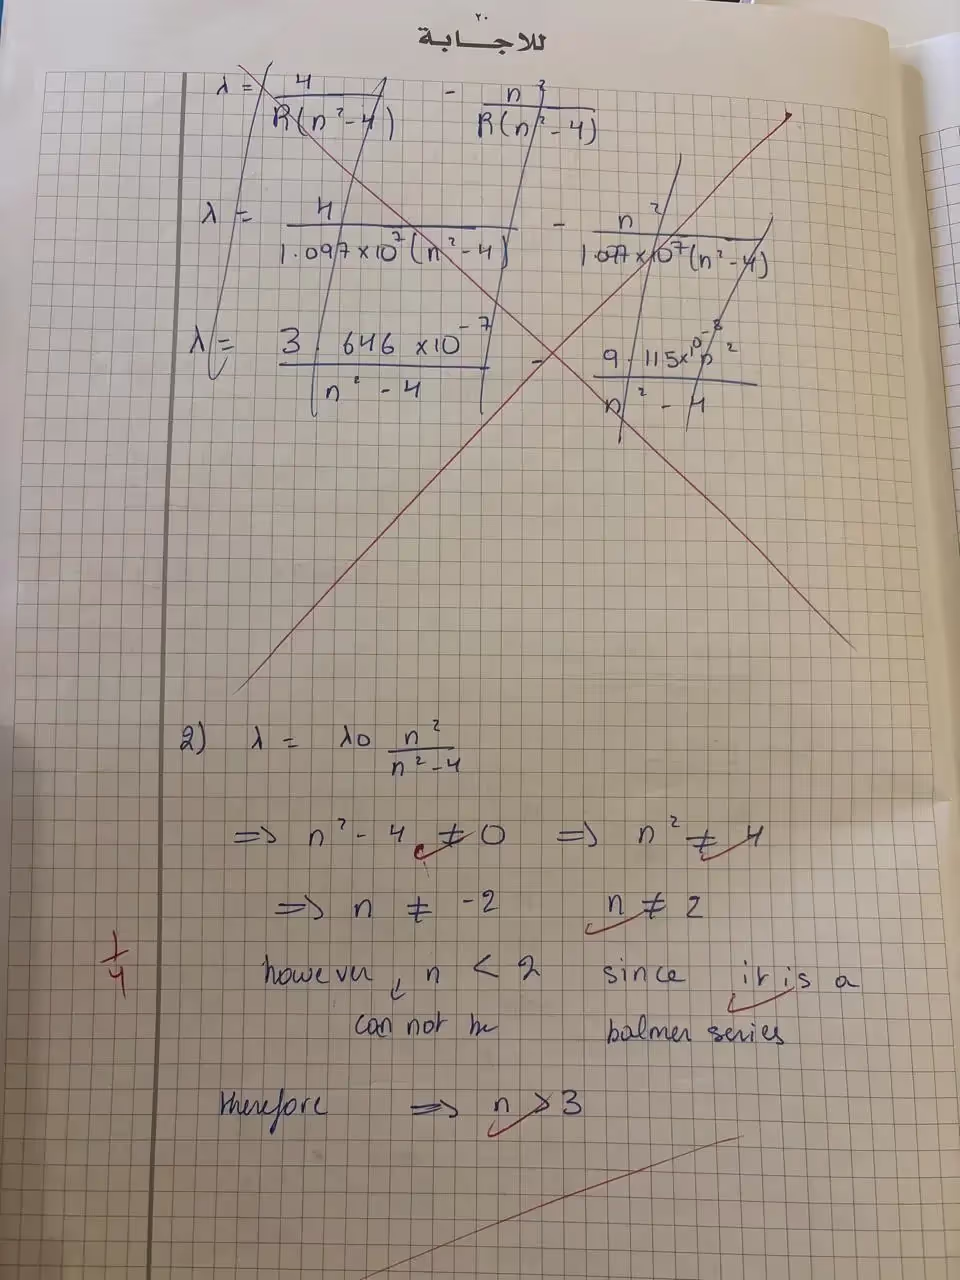 ٢٠
للاجابة
λ = 4 / R(n² - 4) - n² / R(n² - 4)
λ = 4 / 1.097 × 10⁷ (n² - 4) - n² / 1.097 × 10⁷ (n² - 4)
λ = 3.646 × 10⁻⁷ / n² - 4 - 9.115 × 10⁻⁸ n² / n² - 4
2) λ = λ0 n² / n² - 4
=> n² - 4 ≠ 0 => n² ≠ 4
=> n ≠ -2 n ≠ 2
however, n < 2 since it is a
can not be balmer series
therefore => n > 3